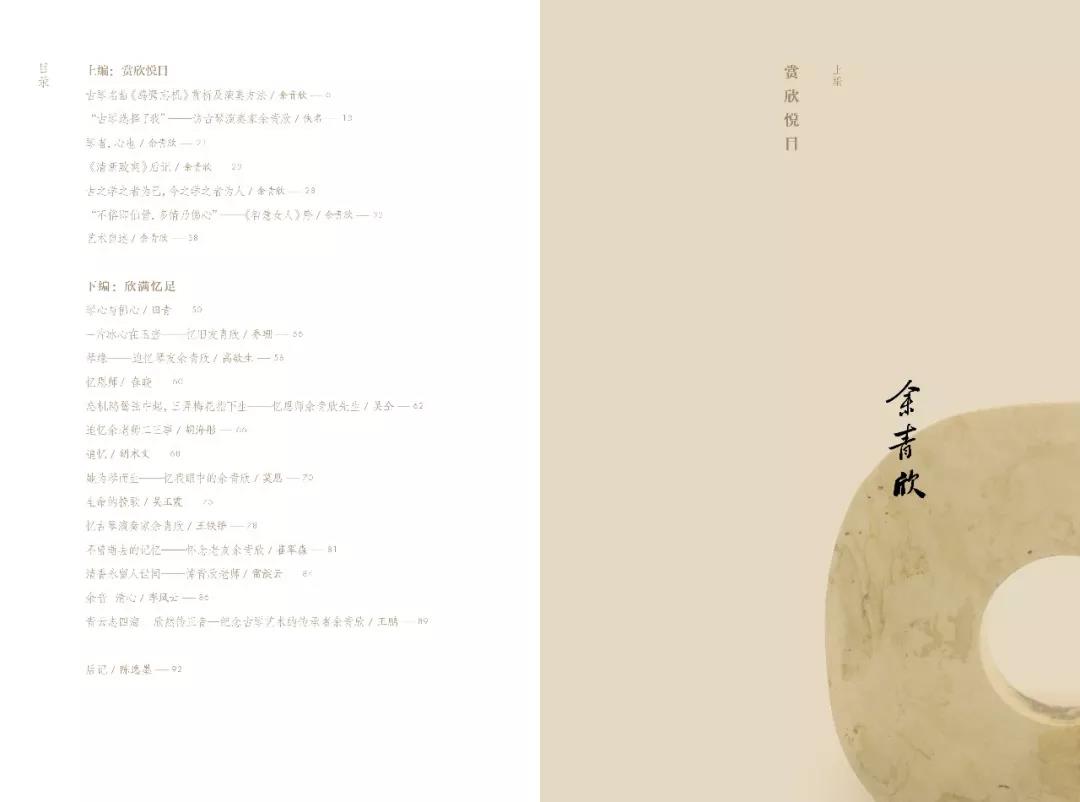 目录
上编：赏欣悦目
古琴名曲《鸥鹭忘机》赏析及演奏方法 / 余青欣 — 6
“古琴选择了我”——访古琴演奏家余青欣 / 佚名 — 13
琴者，心也 / 余青欣 — 21
《清新致爽》后记 / 余青欣
古之学之者为己，今之学之者为人 / 余青欣 — 28
“不俗即仙骨，多情乃佛心”——《智慧女人》序 / 余青欣 — 32
艺术自述 / 余青欣 — 38
下编：欣满忆足
琴心与佛心 / 田青 50
一片冰心在玉壶——忆旧友青欣 / 乔珊
琴缘——追忆琴友余青欣 / 高敏生 — 58
忆恩师 / 春晓 60
忘机鸥鹭弦中起，三弄梅花指下生——忆恩师余青欣先生 / 吴 — 62
追忆余老师二三事 / 胡海彤 — 66
追忆 / 胡木文 68
她为琴而生——忆我眼中的余青欣 / 莫思 — 70
生命的挽歌 / 吴玉霞 75
忆古琴演奏家余青欣 / 王 — 78
不曾逝去的记忆——怀念老友余青欣 / 崔军淼 — 81
清香永留人世间——青欣老师 / 雷滋云
余音 清心 / 李凤云 — 86
青云志四海 欣然传三音—纪念古琴艺术的传承者余青欣 / 王鹏 — 89
后记 / 陈逸墨 — 92
上编
赏欣悦目
余青欣